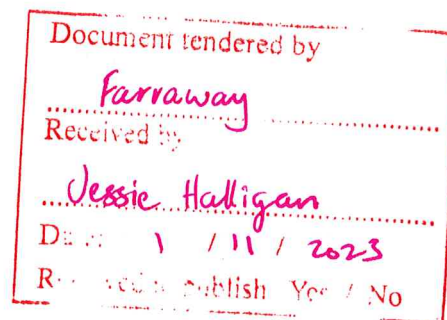 Document tendered by
Farraway
Received by
Jessie Halligan
1 / 11 / 2023
publish Yes / No